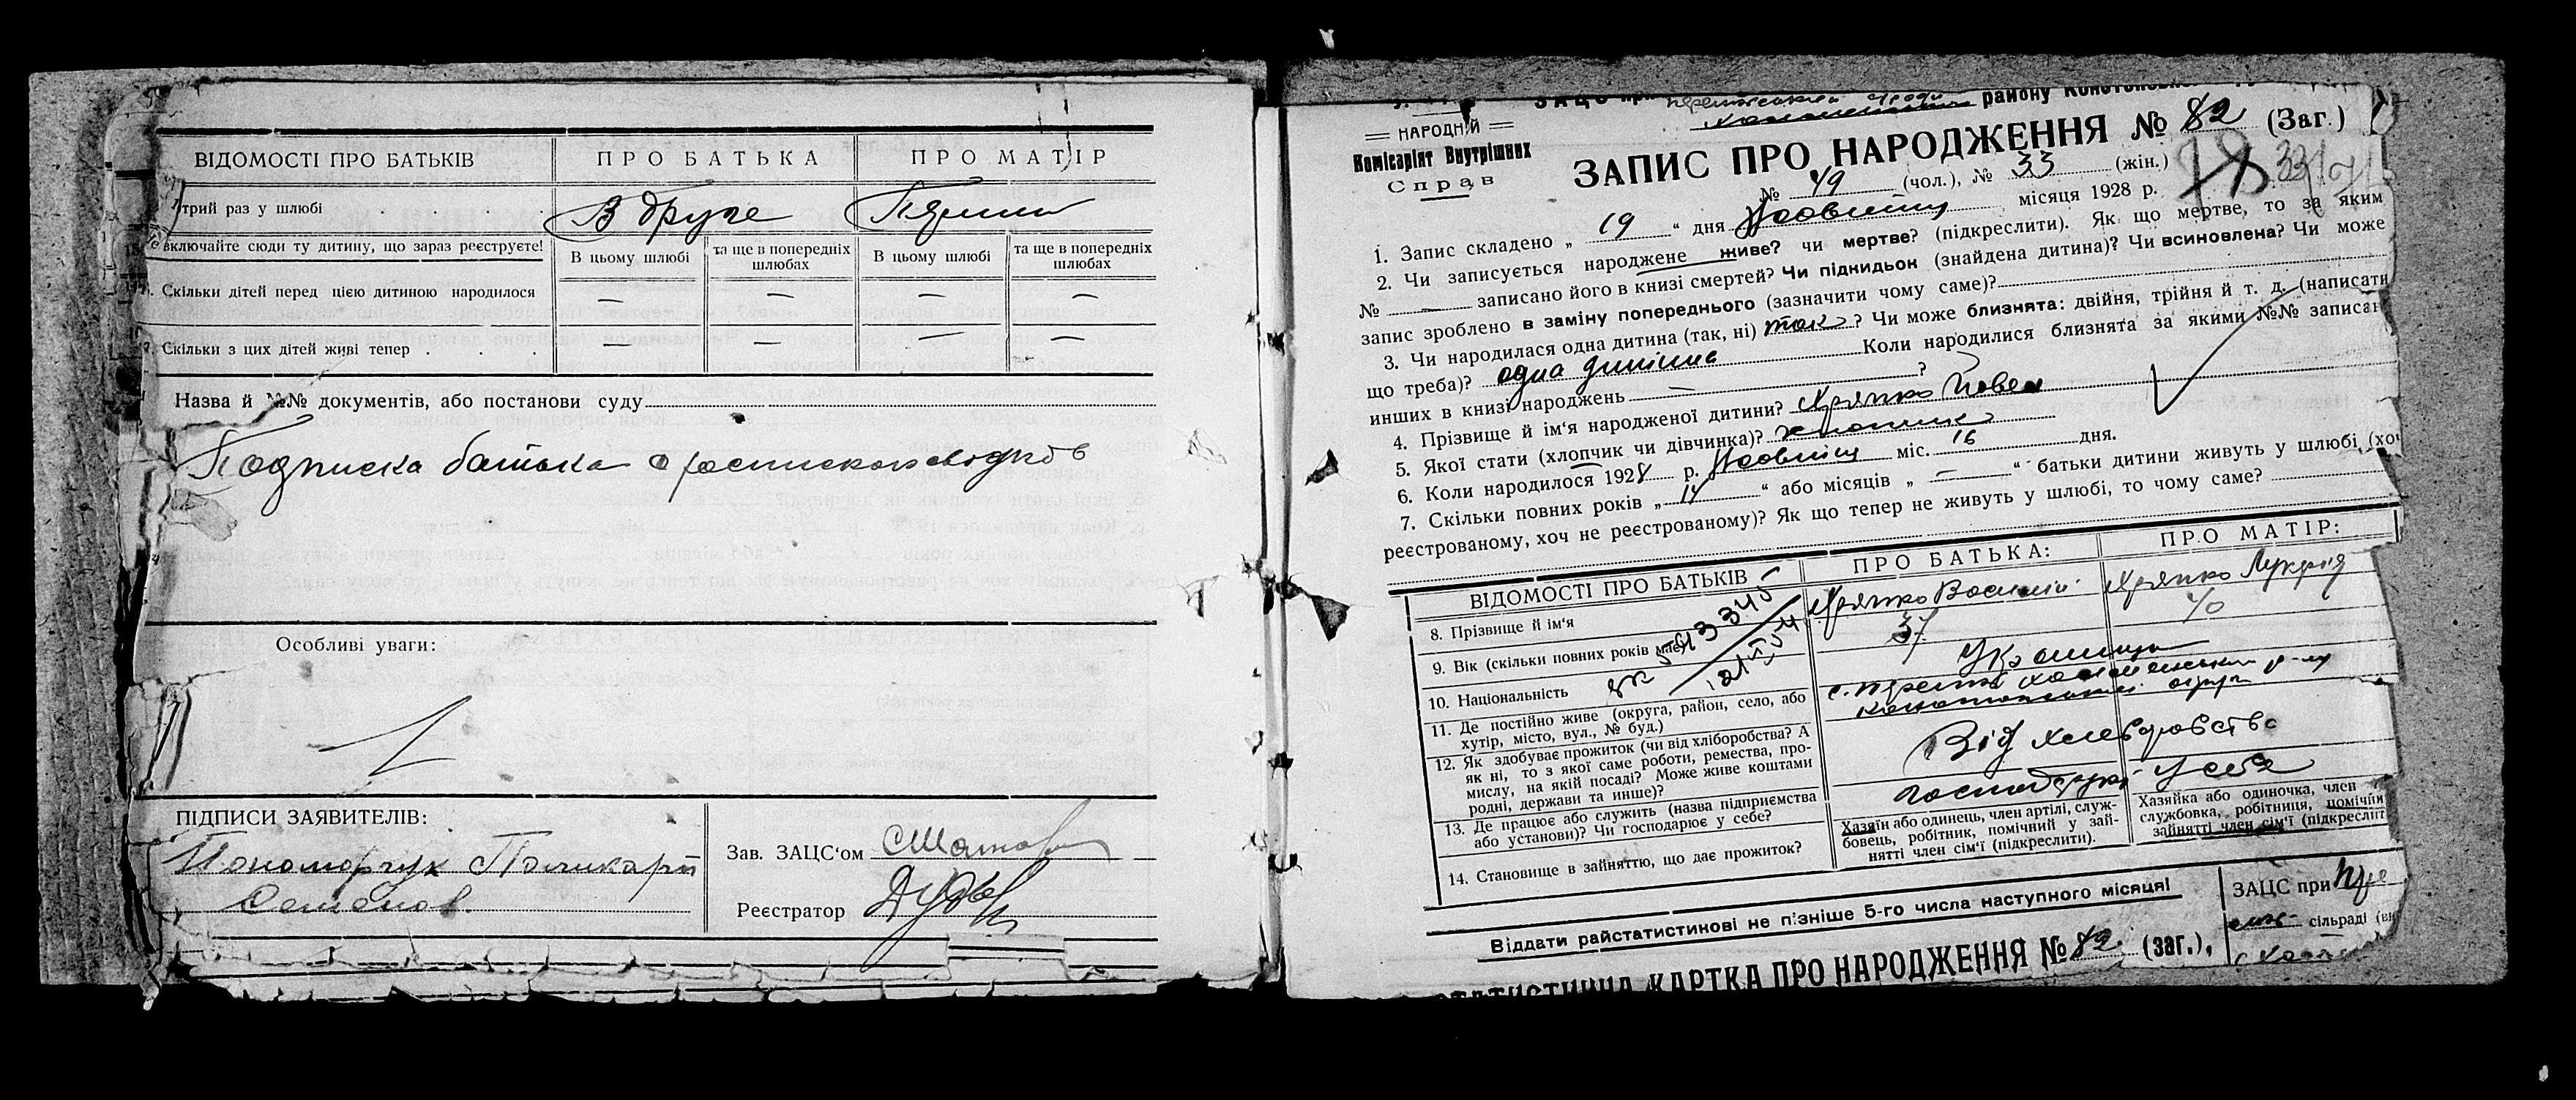 ВІДОМОСТІ ПРО БАТЬКІВ
ПРО БАТЬКА
ПРО МАТІР
трий раз у шлюбі . . . .
В друге
включайте сюди ту дитину, що зараз реєструєте!
В цьому шлюбі
та ще в попередніх шлюбах
В цьому шлюбі
та ще в попередніх шлюбах
Скільки дітей перед цією дитиною народилося
— — — —
Скільки з цих дітей живі тепер . . .
— — — —
Назва й №№ документів, або постанови суду
Подписка батька
Особливі уваги:
ПІДПИСИ ЗАЯВИТЕЛІВ:
Пономарчук Поликарп
Семенов.
Зав. ЗАЦС'ом
Реєстратор
ЗАЦС при
району
НАРОДНІЙ
Комісаріят Внутрішних
Справ
ЗАПИС ПРО НАРОДЖЕННЯ № 82 (Заг.)
№ 49 (чол.), № 33 (жін.)
1. Запис складено „ 19 “ дня Жовтня місяця 1928 р.
2. Чи записується народжене живе? чи мертве? (підкреслити). Як що мертве, то за яким
№ — записано його в книзі смертей? Чи підкидьок (знайдена дитина)? Чи всиновлена? Чи може
запис зроблено в заміну попереднього (зазначити чому саме)?
3. Чи народилася одна дитина (так, ні) так? Чи може близнята: двійня, трійня й т. д. (написати
що треба)? одна дитина Коли народилися близнята за якими №№ записан
инших в книзі народжень — ?
4. Прізвище й ім'я народженої дитини? Хряпко Павел
5. Якої стати (хлопчик чи дівчинка)? хлопчик
6. Коли народилося 1928 р. Жовтня міс. 16 дня.
7. Скільки повних років „ 14 “ або місяців „ — “ батьки дитини живуть у шлюбі (хоч
реєстрованому, хоч не реєстрованому)? Як що тепер не живуть у шлюбі, то чому саме?
ВІДОМОСТІ ПРО БАТЬКІВ
ПРО БАТЬКА:
ПРО МАТІР:
8. Прізвище й ім'я
Хряпко Василій
Хряпко Лукрія
9. Вік (скільки повних років має)
37
40
10. Національність
Українці
11. Де постійно живе (округа, район, село, або
хутір, місто, вул., № буд.)
12. Як здобуває прожиток (чи від хліборобства? А
як ні, то з якої саме роботи, ремества, про-
мислу, на якій посаді? Може живе коштами
родні, держави та инше)?
Від хлеборобства
13. Де працює або служить (назва підприємства
або установи)? Чи господарює у себе?
у себе
14. Становище в зайняттю, що дає прожиток?
Хазяїн або одинець, член артілі, служ-
бовець, робітник, помічний у зай-
нятті член сім'ї (підкреслити).
Хазяйка або одиночка, член
службовка, робітниця, помічни
зайнятті член сім'ї (підкреслит
Віддати райстатистикові не пізніше 5-го числа наступного місяця!
ЗАЦС при
сільраді
СТАТИСТИЧНА КАРТКА ПРО НАРОДЖЕННЯ № 82 (заг.),